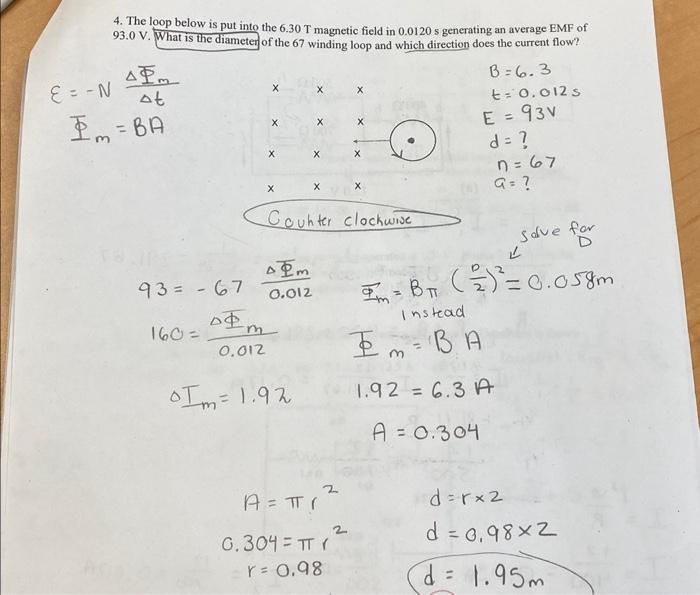 4. The loop below is put into the 6.30 T magnetic field in 0.0120 s generating an average EMF of
93.0 V. What is the diameter of the 67 winding loop and which direction does the current flow?
ε = -N ΔΦm/Δt
Φm = BA
x x x
x x x
x x x
x x x
B = 6.3
t = 0.012s
E = 93V
d = ?
n = 67
a = ?
Counter clochwise
solve for
D
93 = -67 ΔΦm/0.012
Φm = Bπ (D/2)² = 0.058m
Instead
160 = ΔΦm/0.012
Φm = B A
ΔIm = 1.92
1.92 = 6.3 A
A = 0.304
A = πr²
0.304 = πr²
r = 0.98
d = r x 2
d = 0.98 x 2
d = 1.95m